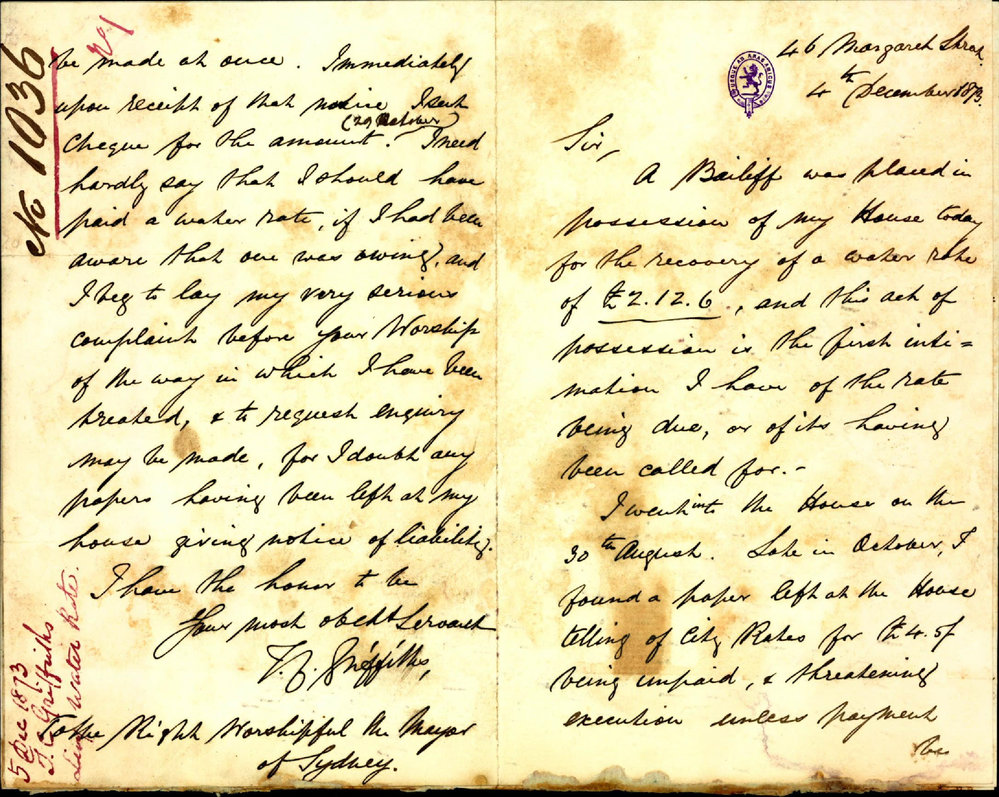 46 Margaret Street
4th December 1873.
Sir,
A Bailiff was placed in
possession of my House today
for the recovery of a water rate
of £2.12.6, and this act of
possession is the first inti=
mation I have of the rate
being due, or of its having
been called for.-
I went into the House on the
30th August. Late in October, I
found a paper left at the House
telling of City Rates for £4.5/
being unpaid, & threatening
execution unless payment
be
be made at once. Immediately
upon receipt of that notice I sent
(29 October)
cheque for the amount. I need
hardly say that I should have
paid a water rate, if I had been
aware that one was owing, and
I beg to lay my very serious
complaint before your Worship
of the way in which I have been
treated, & to request enquiry
may be made, for I doubt any
papers having been left at my
house giving notice of liability.
I have the honor to be
Your most obedt Servant
Griffiths,
To the Right Worshipful the Mayor
of Sydney.
No 1036
5 Dec 1873
Griffiths
Water Rate.